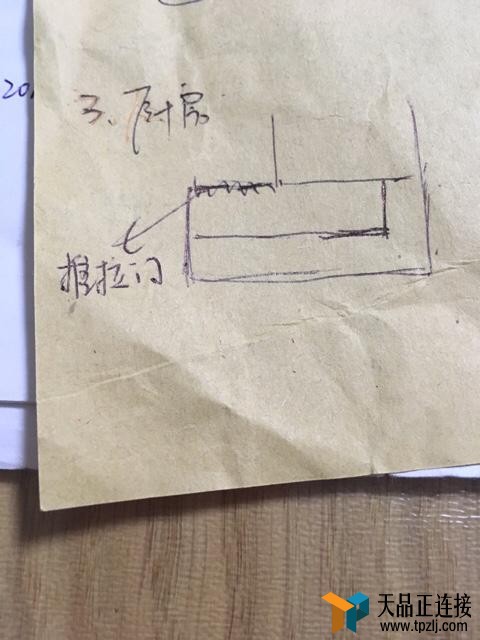 20
3、厨房
推拉门
天品正连接
www.tpzlj.com